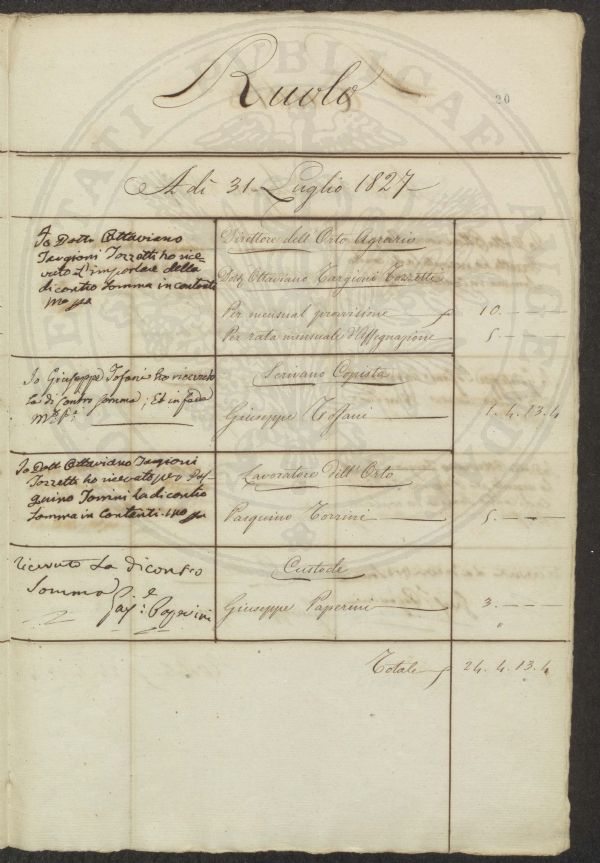 Ruolo
20
A dì 31 Luglio 1827
Io Dottr Ottaviano
Targioni Tozzetti ho rice-
vuto l'importare della
di contro Somma in contanti
mo pa
Direttore dell'Orto Agrario
Dottr Ottaviano Targioni Tozzetti
Per mensual provvisione 10. - -
Per rata mensuale d'Assegnazione 5. - -
Io Giuseppe Tofani ho ricevuto
la di Contro Somma; Ed in fede
Mo Po
Scrivano Copista
Giuseppe Toffani 1. 4. 13. 4
Io Dottr Ottaviano Targioni
Tozzetti ho ricevuto per Pas-
quino Torrini la di contro
Somma in Contanti mo pa
Lavoratore dell'Orto
Pasquino Torrini 5. - -
ricevuto La di contro
Somma
Gasp: Paperini
Custode
Giuseppe Paperini 3. - -
Totale 24. 4. 13. 4